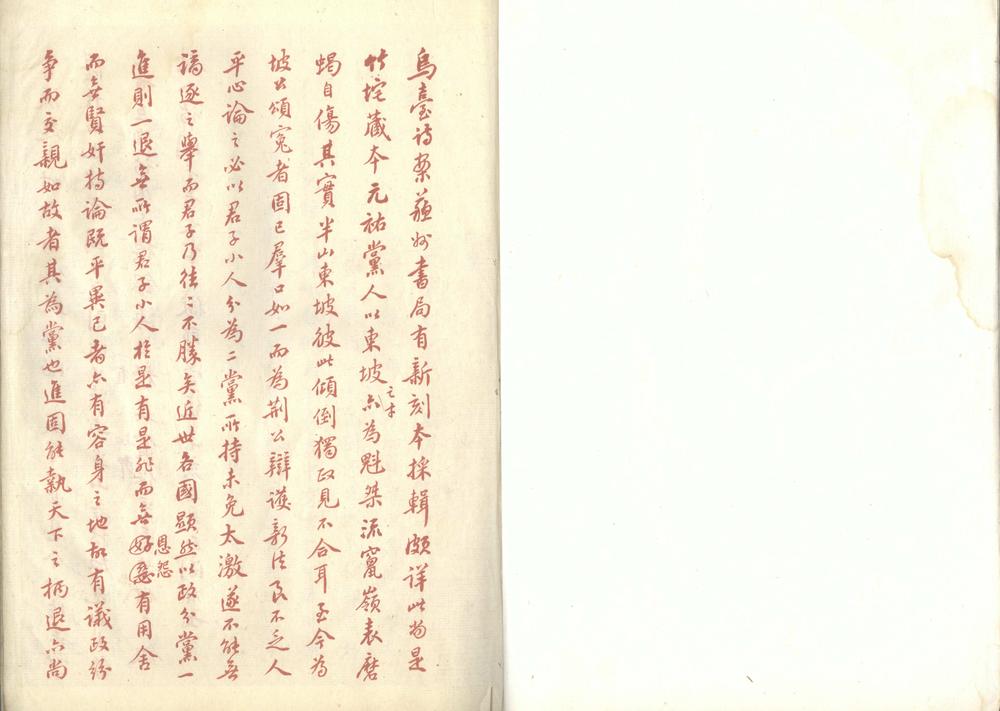 烏臺詩案蘇州書局有新刻本採輯頗詳此尚是
竹垞藏本元祐黨人以東坡之才亦為魁桀流竄嶺表磨
蝎自傷其實半山東坡彼此傾倒獨政見不合耳至今為
坡公頌冤者固已羣口如一而為荆公辯護新法良不乏人
平心論之必以君子小人分為二黨所持未免太激遂不能無
謫逐之舉而君子乃往〻不勝矣近世各國顯然以政分黨一
進則一退無所謂君子小人於是有是非而無恩怨有用舍
而無賢奸持論既平異己者亦有容身之地故有議政紛
爭而交親如故者其為黨也進固能執天下之柄退亦尚